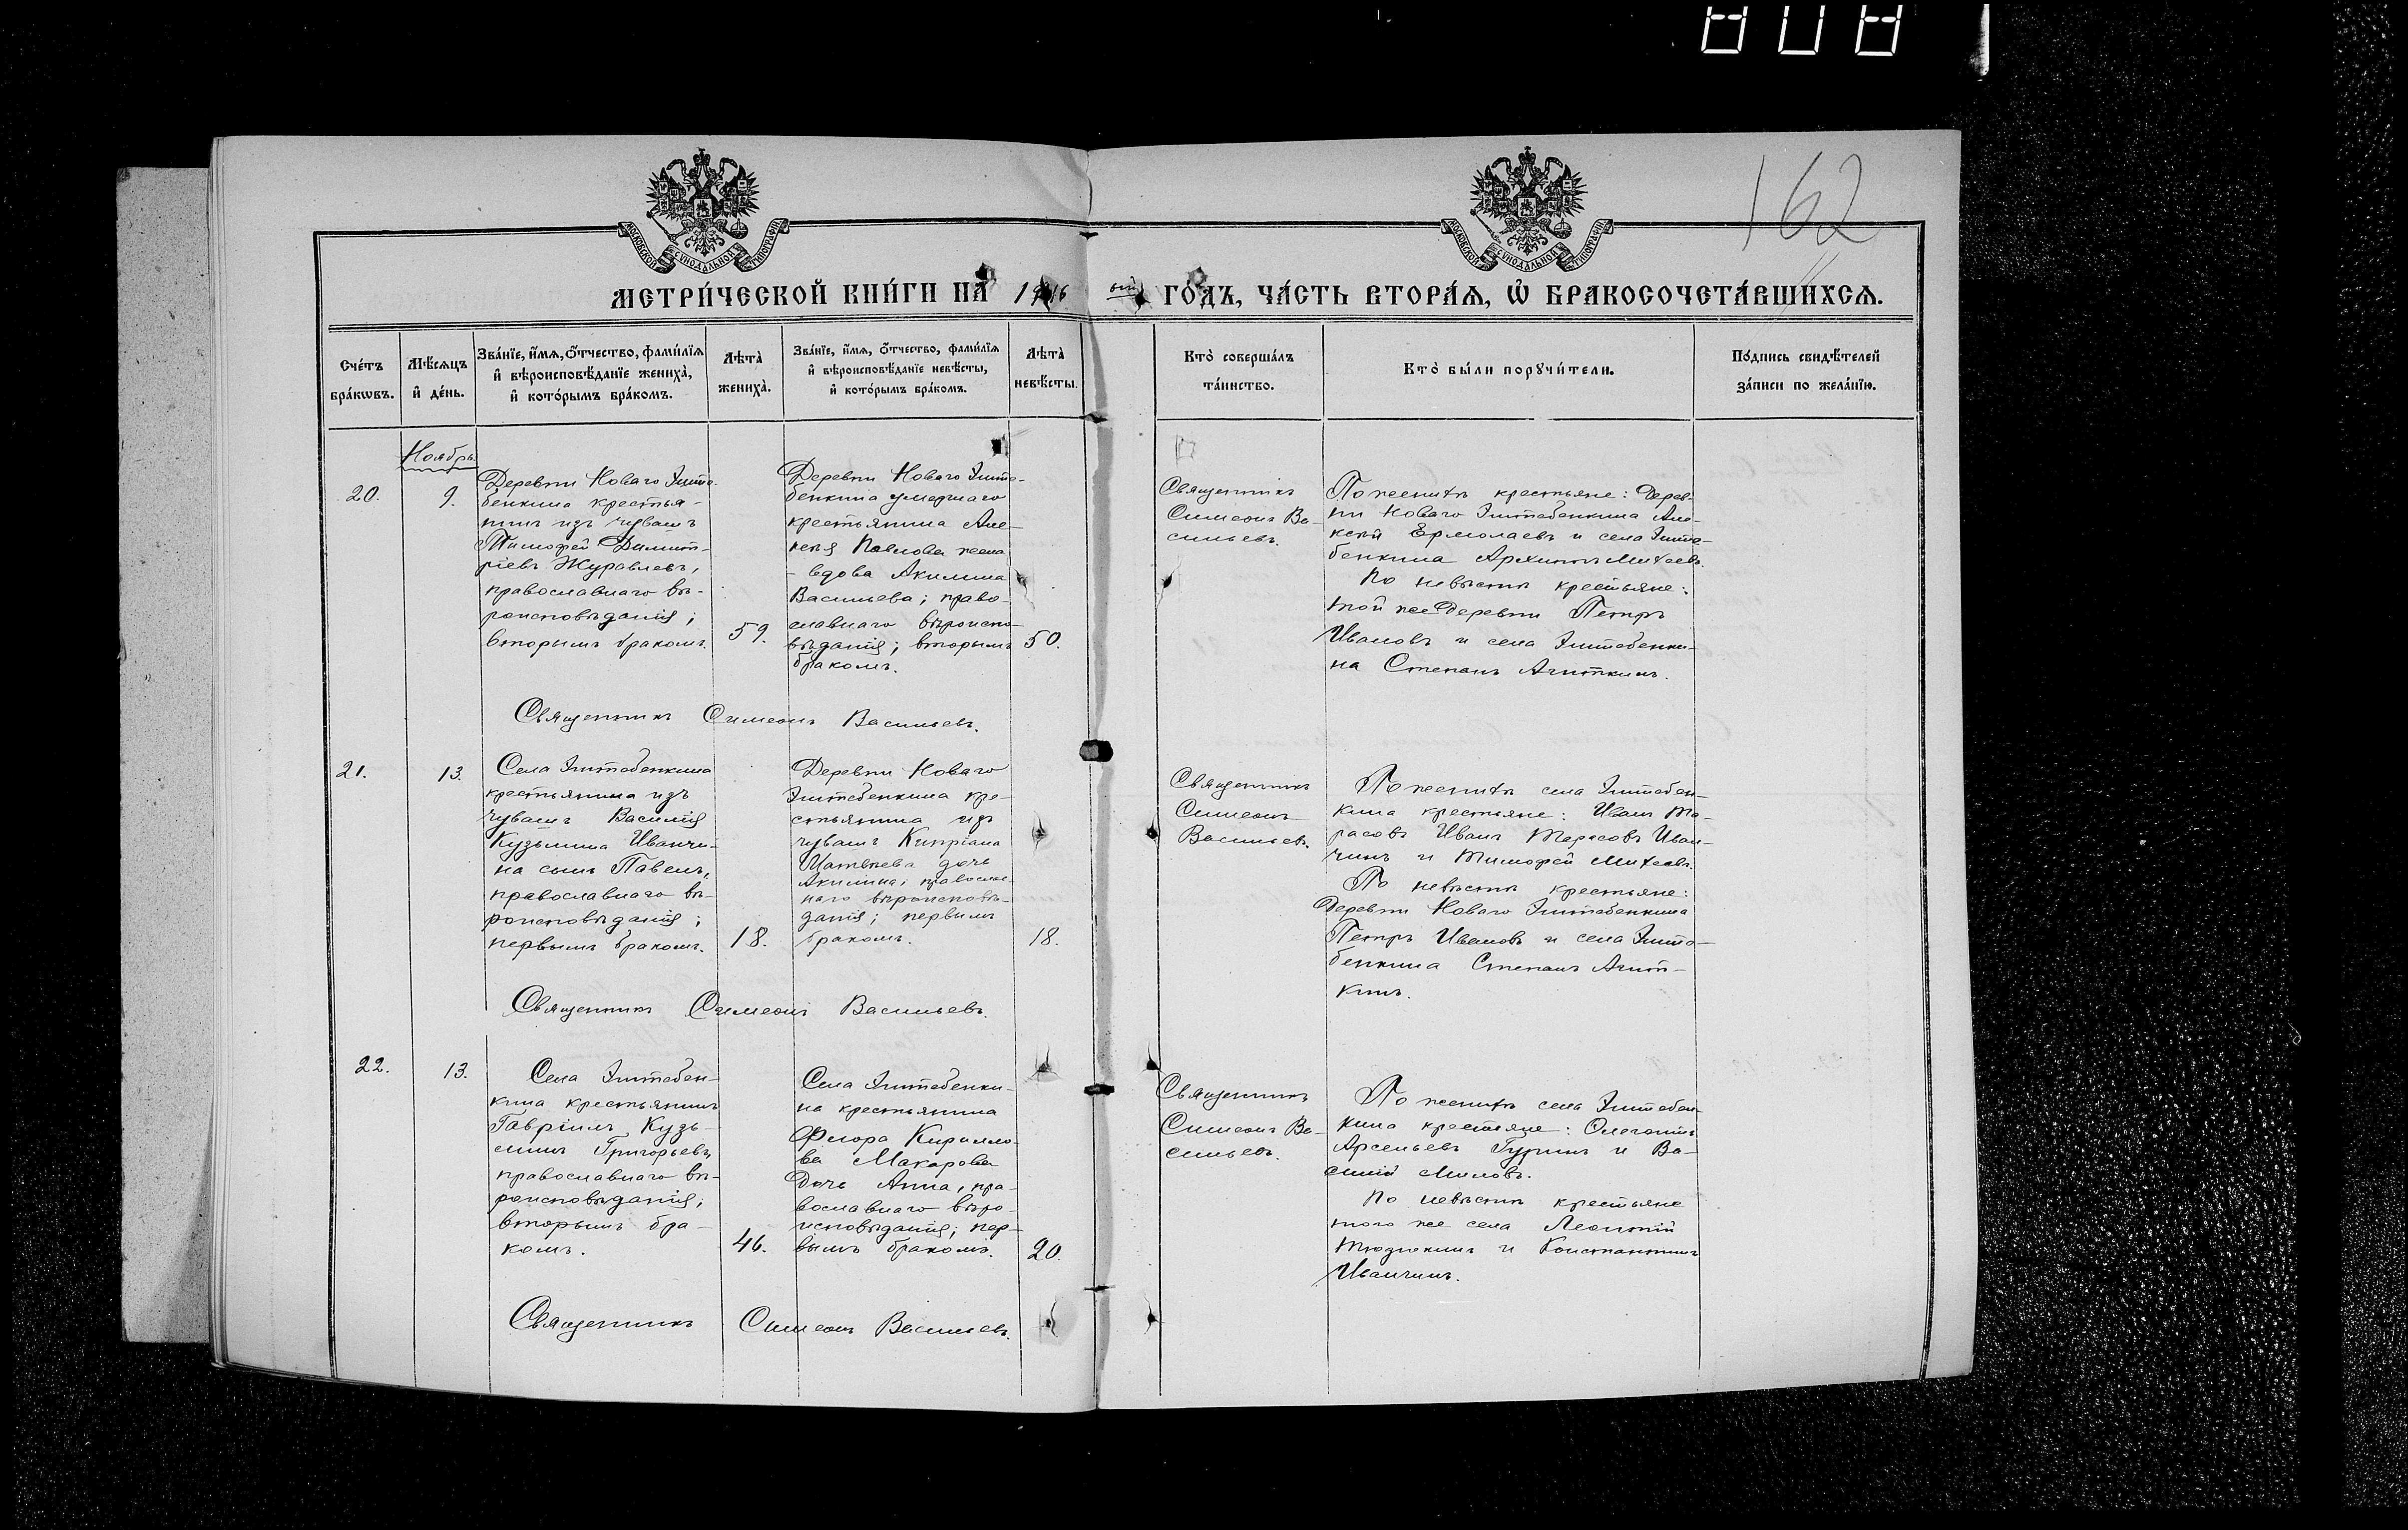 162
МОСКОВСКОЙ СѴНОДАЛЬНОЙ ТИПОГРАФІИ
МОСКОВСКОЙ СѴНОДАЛЬНОЙ ТИПОГРАФІИ
МЕТРИ́ЧЕСКОЙ КНИ́ГИ НА 1916 ый ГО́ДЪ, ЧА́СТЬ ВТОРА́Ѧ, Ѡ БРАКОСОЧЕТА́ВШИХСѦ.
Сче́тъ бра́кѡвъ.
Мѣ́сѧцъ и҆ де́нь.
Зва́нїе, и҆́мѧ, ѻ҆́тчество, фами́лїѧ и҆ вѣроисповѣ́данїе жениха̀, и҆ кото́рымъ бра́комъ.
Лѣта̀ жениха̀.
Зва́нїе, и҆́мѧ, ѻ҆́тчество, фами́лїѧ и҆ вѣроисповѣ́данїе невѣ́сты, и҆ кото́рымъ бра́комъ.
Лѣта̀ невѣ́сты.
Кто̀ соверша́лъ та́инство.
Кто̀ бы́ли порꙋчи́тели.
По́дпись свидѣ́телей за́писи по жела́нїю.
Ноябрь
20.
9.
Деревни Новаго Эште-
бенкина крестья-
нинъ изъ чувашъ
Тимофей Димит-
ріевъ Журавлевъ,
православнаго вѣ-
роисповѣданія;
вторымъ бракомъ.
59.
Деревни Новаго Эште-
бенкина умершаго
крестьянина Але-
ксѣя Павлова жена
- вдова Акилина
Васильева; право-
славнаго вѣроиспо-
вѣданія; вторымъ
бракомъ.
50.
Священникъ
Симеонъ Ва-
сильевъ.
По женихѣ крестьяне: Дерев-
ни Новаго Эштебенкина Але-
ксѣй Ермолаевъ и села Эште-
бенкина Архипъ Михеевъ.
По невѣстѣ крестьяне:
той же деревни Петръ
Ивановъ и села Эштебенки-
на Степанъ Ачиткинъ.
Священникъ Симеонъ Васильевъ.
21.
13.
Села Эштебенкина
крестьянина изъ
чувашъ Василія
Кузьмина Иванчи-
на сынъ Павелъ,
православнаго вѣ-
роисповѣданія;
первымъ бракомъ.
18.
Деревни Новаго
Эштебенкина кре-
стьянина изъ
чувашъ Кипріана
дочь
Акилина; православ-
наго вѣроисповѣ-
данія; первымъ
бракомъ.
18.
Священникъ
Симеонъ
Васильевъ.
По женихѣ села Эштебен-
кина крестьяне: Иванъ Та-
расовъ Иванъ Тарасовъ Иван-
чинъ и Тимофей Михеевъ.
По невѣстѣ крестьяне:
Деревни Новаго Эштебенкина
Петръ Ивановъ и села Эште-
бенкина Степанъ Ачит-
кинъ.
Священникъ Симеонъ Васильевъ.
22.
13.
Села Эштебен-
кина крестьянинъ
Гавріилъ Кузь-
минъ Григорьевъ,
православнаго вѣ-
роисповѣданія;
вторымъ бра-
комъ.
46.
Села Эштебенки-
на крестьянина
Флора Кирилло-
ва Макарова
дочь Анна, пра-
вославнаго вѣро-
исповѣданія; пер-
вымъ бракомъ.
20.
Священникъ
Симеонъ Ва-
сильевъ.
По женихѣ села Эштебен-
кина крестьяне:
Арсеньевъ Гуринъ и Ва-
силій Миловъ.
По невѣстѣ крестьяне
того же села Леонтій
и Константинъ
Иванчинъ.
Священникъ Симеонъ Васильевъ.